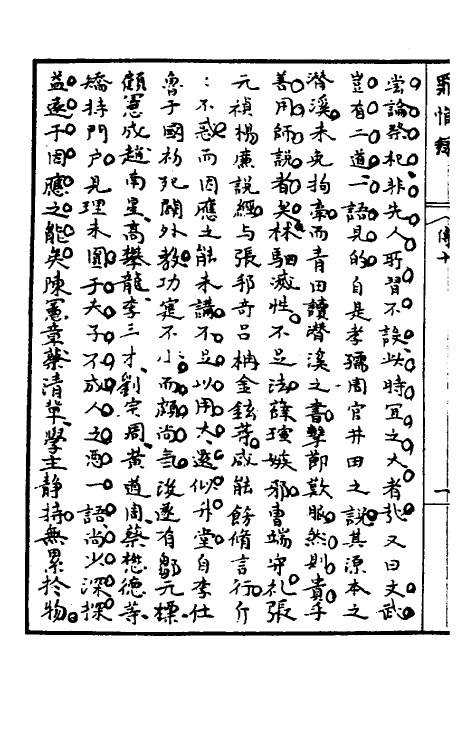 罪惟錄
傳十
一
嘗論祭祀非先人所習不設此時宜之大者於又曰文武
豈有二道一語見的自是孝孺周官井田之說其源本之
潛溪未免拘牽而青田讀潛溪之書擊節歎服然則貴乎
善用師說者矣林駟滅性不足法薛瑄嫉邪曹端守礼張
元禎楊廉說經与張邦奇呂柟金鉉等咸能飭脩言行斤
：不惑而因應之能未講不足以用大選似升堂自李仕
魯于國初死闢外教功寔不小而頗尚氣後遂有鄒元標
顧憲成趙南星高攀龍李三才劉宗周黃道周蔡懋德等
矯持門戶見理未圓于夫子不成人之惡一語尚少深探
益遠于因應之能矣陳憲章蔡清輩學主靜持無累於物